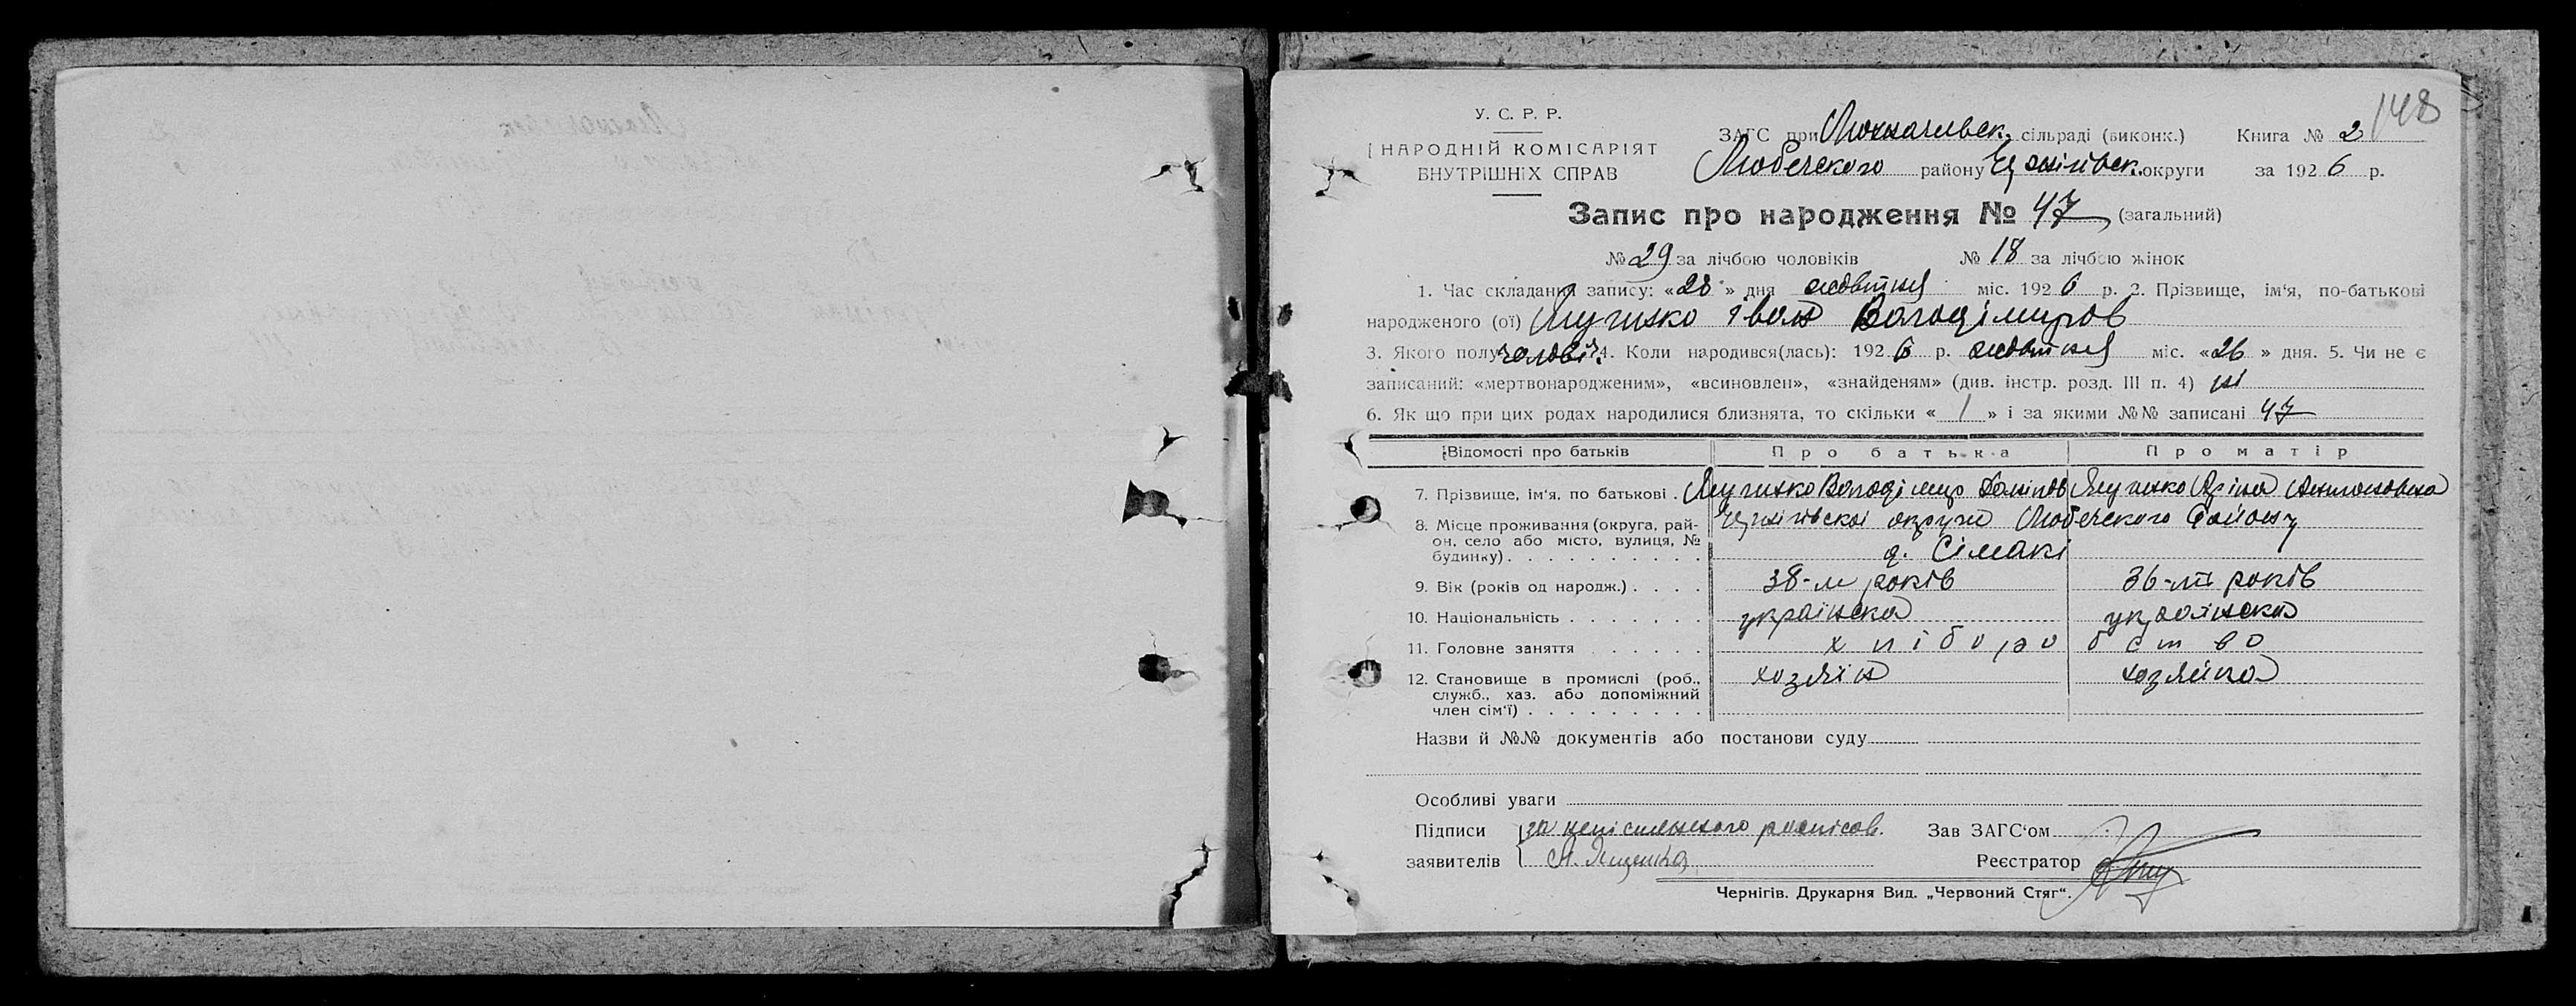 148
У. С. Р. Р.
НАРОДНІЙ КОМІСАРІЯТ
ВНУТРІШНІХ СПРАВ
ЗАГС при сільраді (виконк.) Книга № 2
Любечского району Чернігівск. округи за 1926 р.
Запис про народження № 47 (загальний)
№ 29 за лічбою чоловіків № 18 за лічбою жінок
1. Час складання запису: «28» дня жовтня міс. 1926 р. 2. Прізвище, ім'я, по-батькові
народженого (ої) Іван Володімиров
3. Якого полу чоловіч. 4. Коли народився(лась): 1926 р. жовтня міс. «26» дня. 5. Чи не є
записаний: «мертвонародженим», «всиновлен», «знайденям» (див. інстр. розд. III п. 4) ні
6. Як що при цих родах народилися близнята, то скільки «1» і за якими №№ записані 47
Відомості про батьків Про батька Про матір
7. Прізвище, ім'я, по батькові . Володімир
8. Місце проживання (округа, рай- Чернігівскоі округи Любечского району
он, село або місто, вулиця, № д. Сімакі
будинку) . . . . . . . . . .
9. Вік (років од народж.) . . . . 38-м років 36-ть років
10. Національність . . . . . . . українска українска
11. Головне заняття . . . . . . хліборобство
12. Становище в промислі (роб., хозяін хозяйка
служб., хаз. або допоміжний
член сім'ї) . . . . . . . . .
Назви й №№ документів або постанови суду
Особливі уваги
Підписи за неписьменного роспісав. Зав ЗАГС'ом
заявителів Реєстратор
Чернігів. Друкарня Вид. „Червоний Стяг".